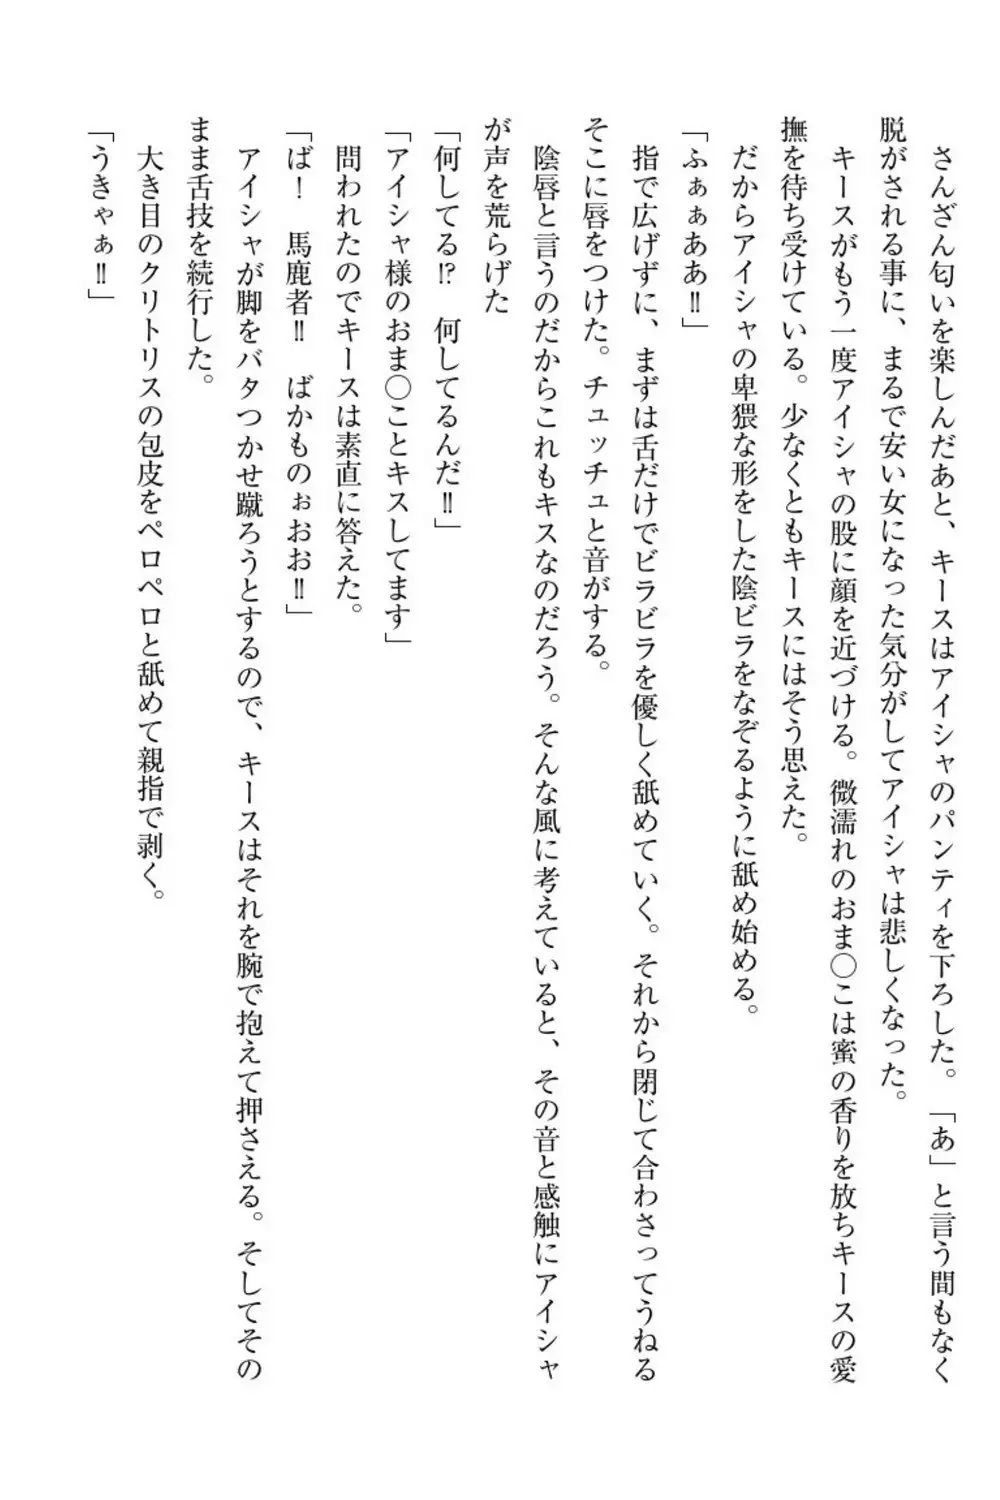 さんざん匂いを楽しんだあと、キースはアイシャのパンティを下ろした。「あ」と言う間もなく
脱がされる事に、まるで安い女になった気分がしてアイシャは悲しくなった。
　キースがもう一度アイシャの股に顔を近づける。微濡れのおま〇こは蜜の香りを放ちキースの愛
撫を待ち受けている。少なくともキースにはそう思えた。
　だからアイシャの卑猥な形をした陰ビラをなぞるように舐め始める。
「ふぁぁああ‼」
　指で広げずに、まずは舌だけでビラビラを優しく舐めていく。それから閉じて合わさってうねる
そこに唇をつけた。チュッチュと音がする。
　陰唇と言うのだからこれもキスなのだろう。そんな風に考えていると、その音と感触にアイシャ
が声を荒らげた
「何してる⁉　何してるんだ‼」
「アイシャ様のおま〇ことキスしてます」
　問われたのでキースは素直に答えた。
「ば！　馬鹿者‼　ばかものぉおお‼」
　アイシャが脚をバタつかせ蹴ろうとするので、キースはそれを腕で抱えて押さえる。そしてその
まま舌技を続行した。
　大き目のクリトリスの包皮をペロペロと舐めて親指で剥く。
「うきゃぁ‼」